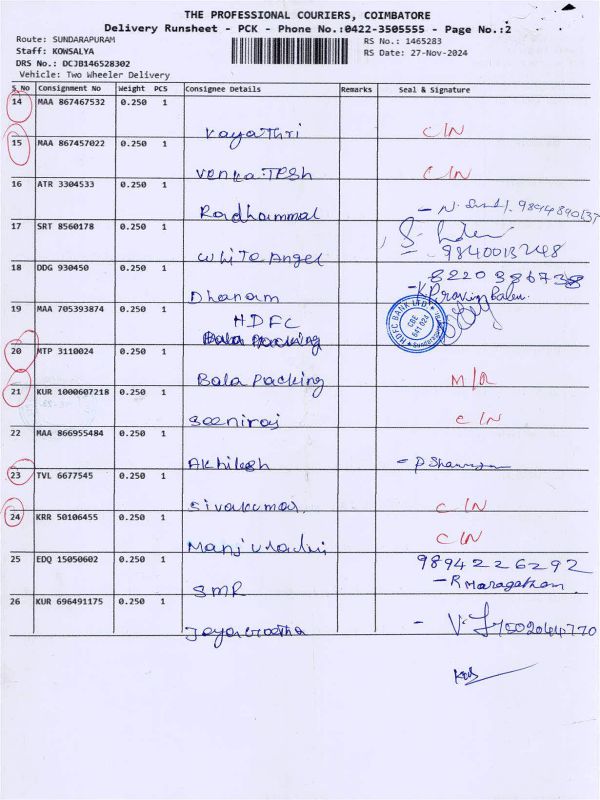 THE PROFESSIONAL COURIERS, COIMBATORE
Delivery Runsheet - PCK - Phone No.:0422-3505555 - Page No.:2
Route: SUNDARAPURAM RS No.: 1465283
Staff: KOWSALYA RS Date: 27-Nov-2024
DRS No.: DCJB146528302
Vehicle: Two Wheeler Delivery
S.No Consignment No Weight PCS Consignee Details Remarks Seal & Signature
14 MAA 867467532 0.250 1
Vayathri C/N
15 MAA 867457022 0.250 1
Venkatesh C/N
16 ATR 3304533 0.250 1
Radhammal
17 SRT 8560178 0.250 1
White Angel 9840013248
18 DDG 930450 0.250 1 8220386738
Dhanam
19 MAA 705393874 0.250 1
HDFC HDFC BANK LTD
Bala Packing
20 MTP 3110024 0.250 1
Bala Packing M/R
21 KUR 1000607218 0.250 1
Seeniraj C/N
22 MAA 866955484 0.250 1
Akhilesh
23 TVL 6677545 0.250 1
Sivakumar C/N
24 KRR 50106455 0.250 1
C/N
25 EDQ 15050602 0.250 1 9894226292
SMR - R Maragatham
26 KUR 696491175 0.250 1
7502044770